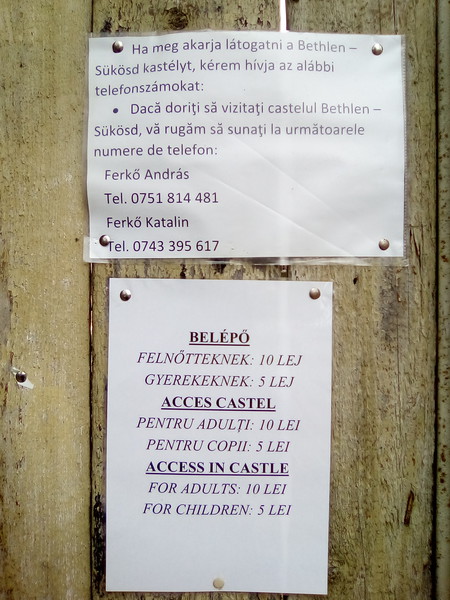 Ha meg akarja látogatni a Bethlen –
Sükösd kastélyt, kérem hívja az alábbi
telefonszámokat:
• Dacă doriţi să vizitaţi castelul Bethlen –
Sükösd, vă rugăm să sunaţi la următoarele
numere de telefon:
Ferkő András
Tel. 0751 814 481
Ferkő Katalin
Tel. 0743 395 617
BELÉPŐ
FELNŐTTEKNEK: 10 LEJ
GYEREKEKNEK: 5 LEJ
ACCES CASTEL
PENTRU ADULȚI: 10 LEI
PENTRU COPII: 5 LEI
ACCESS IN CASTLE
FOR ADULTS: 10 LEI
FOR CHILDREN: 5 LEI